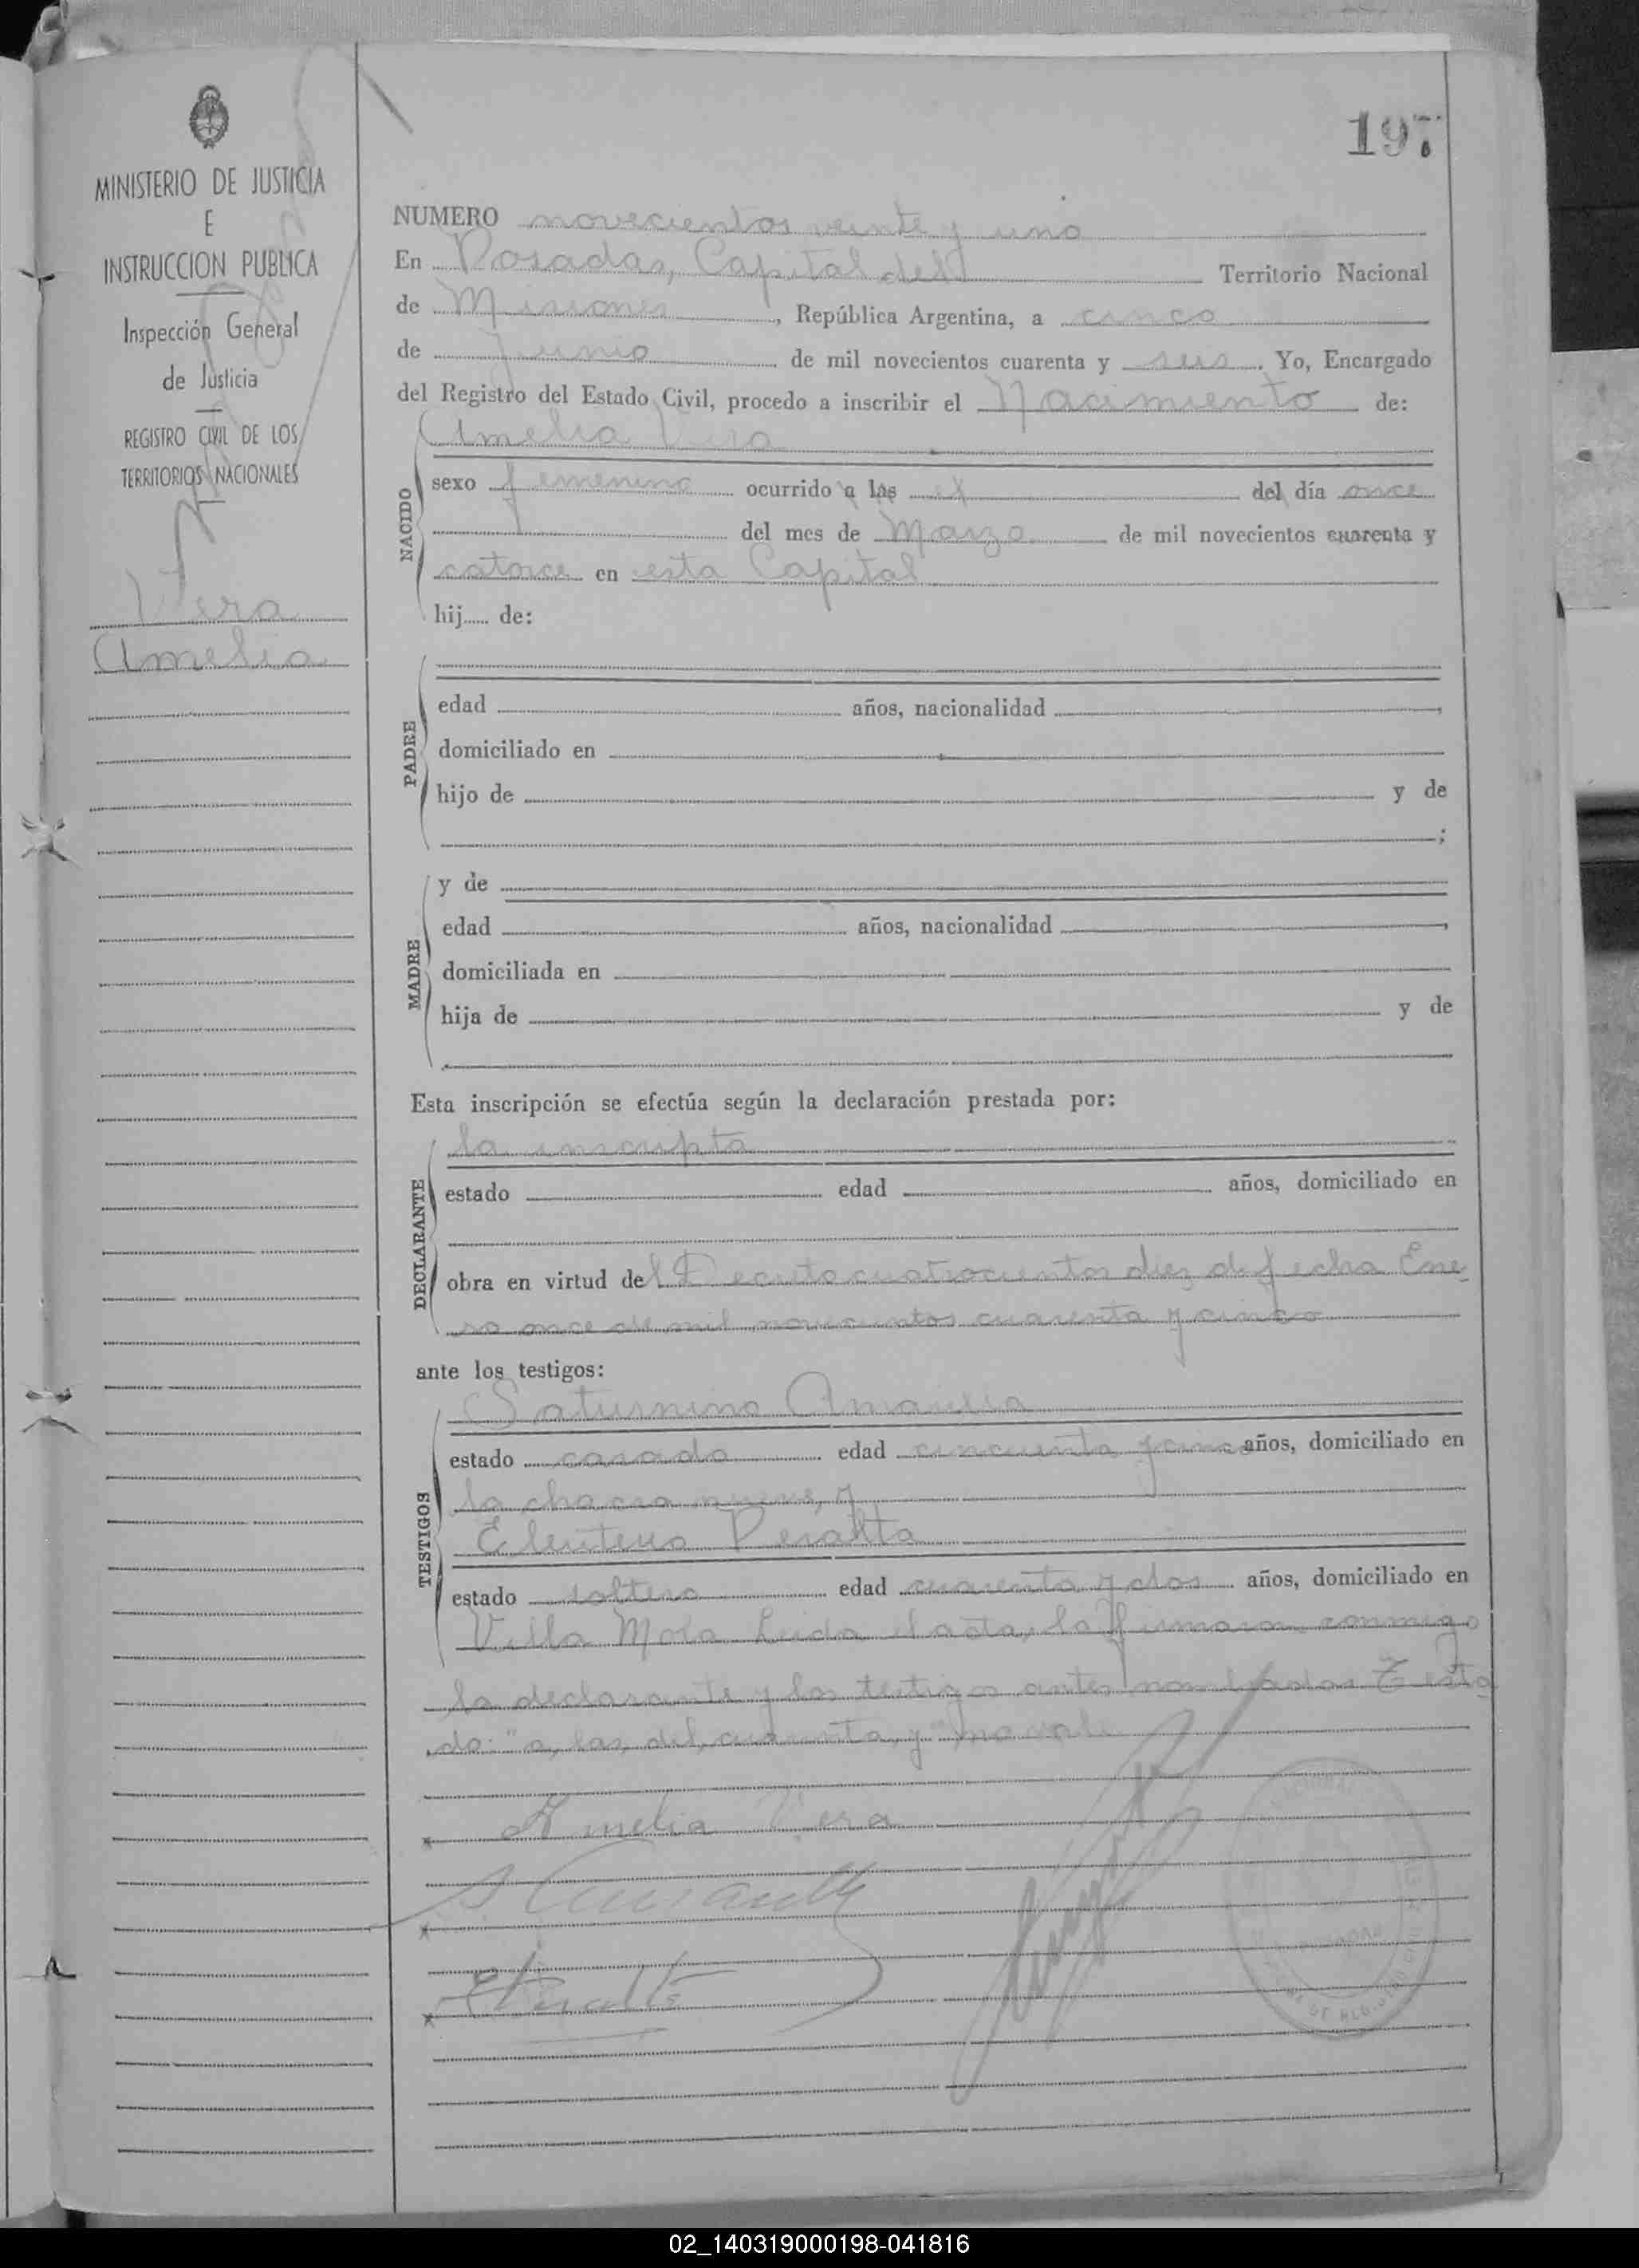 197
MINISTERIO DE JUSTICIA
E
INSTRUCCION PUBLICA
Inspección General
de Justicia
REGISTRO CIVIL DE LOS
TERRITORIOS NACIONALES
Vera
Amelia
NUMERO novecientos veinte y uno
En Posadas, Capital del Territorio Nacional
de Misiones, República Argentina, a cinco
de junio de mil novecientos cuarenta y seis. Yo, Encargado
del Registro del Estado Civil, procedo a inscribir el Nacimiento de:
Amelia Vera
NACIDO
sexo femenino ocurrido a las el del día once
del mes de Marzo de mil novecientos cuarenta y
catorce en esta Capital
hij..... de:
PADRE
edad años, nacionalidad
domiciliado en
hijo de y de
;
MADRE
y de
edad años, nacionalidad
domiciliada en
hija de y de
Esta inscripción se efectúa según la declaración prestada por:
DECLARANTE
la inscripta
estado edad años, domiciliado en
obra en virtud del Decreto cuatrocientos diez de fecha Ene
ro once de mil novecientos cuarenta y cinco
ante los testigos:
TESTIGOS
Saturnino Amarilla
estado casado edad cincuenta y cinco años, domiciliado en
la chacra nueve, y
Eleuterio Peralta
estado soltero edad cuarenta y dos años, domiciliado en
Villa Mola. Leida el acta, la firmaron conmigo
la declarante y los testigos antes nombrados. Testa
do: "a, las, del, cuarenta, y" no vale
Amelia Vera
S Amarilla
E Peralta
02_140319000198-041816